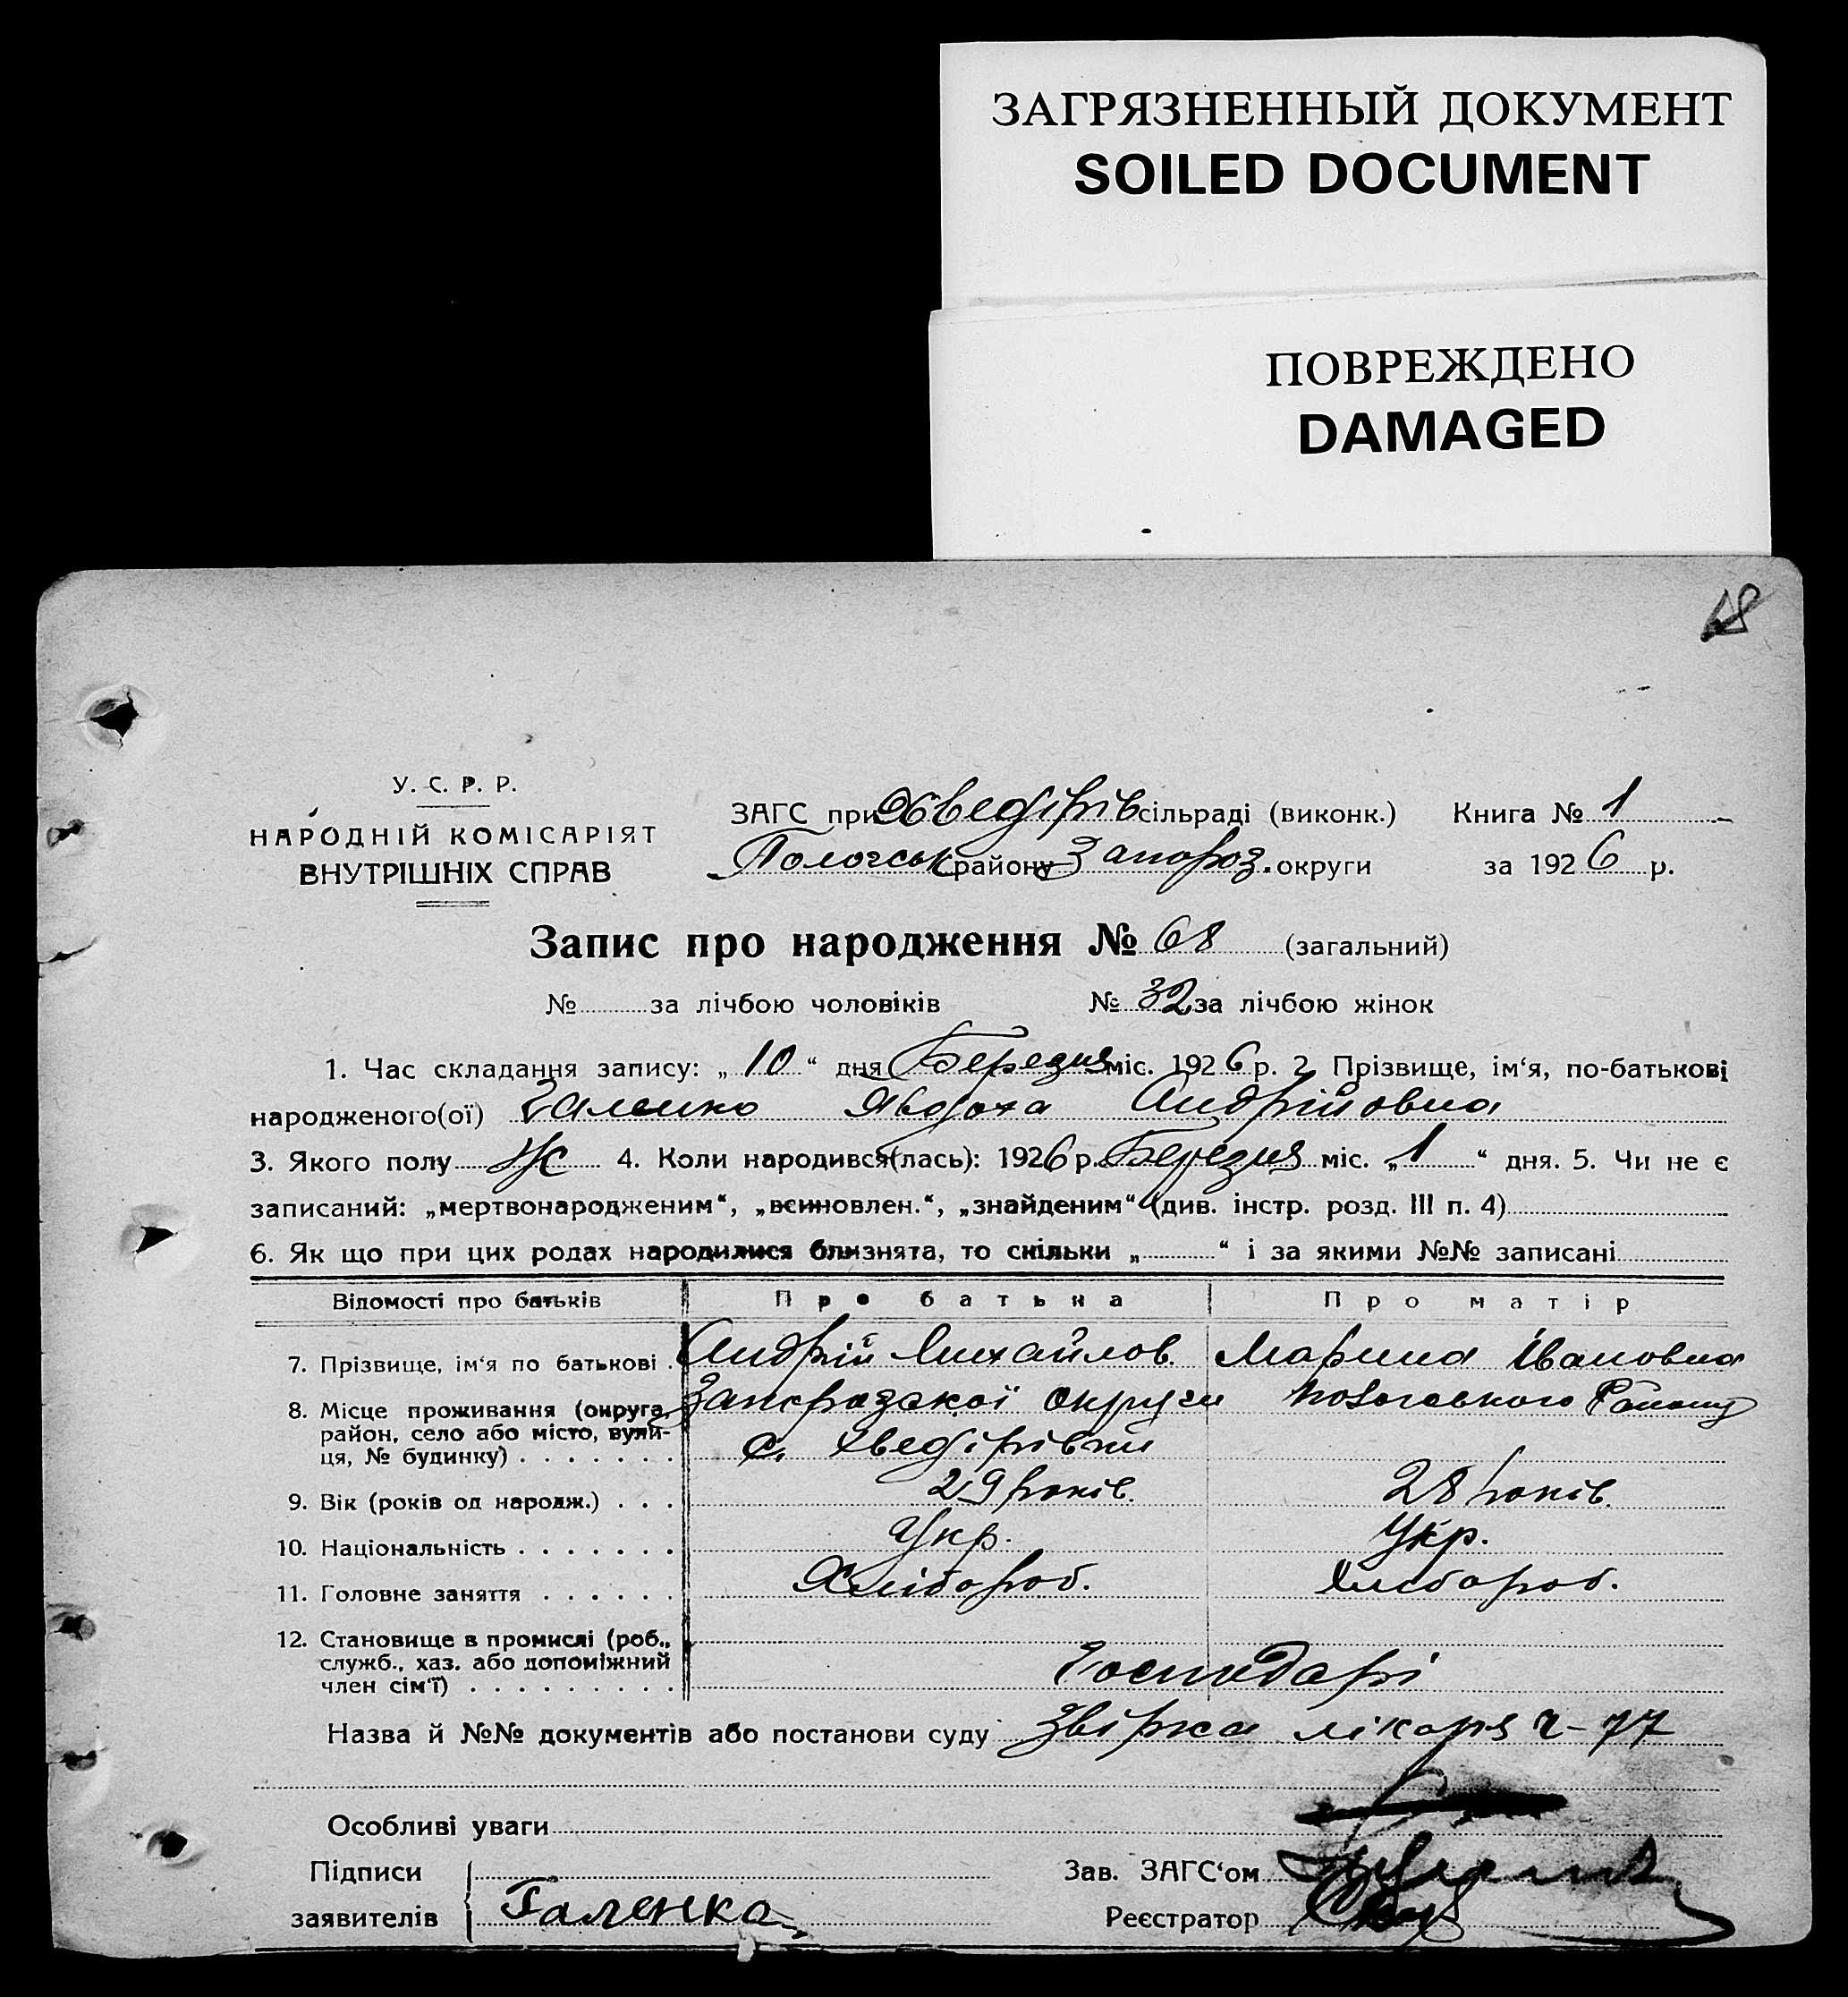 ЗАГРЯЗНЕННЫЙ ДОКУМЕНТ
SOILED DOCUMENT
ПОВРЕЖДЕНО
DAMAGED
68
У. С. Р. Р.
НАРОДНІЙ КОМІСАРІЯТ
ВНУТРІШНІХ СПРАВ
ЗАГС при Хведірів сільраді (виконк.) Книга № 1
Пологськ району Запороз. округи за 1926 р.
Запис про народження № 68 (загальний)
№ за лічбою чоловіків № 32 за лічбою жінок
1. Час складання запису: „10“ дня Березня міс. 1926 р. 2. Прізвище, ім‘я, по-батькові
народженого(ої) Галенко Явдоха Андрійовна
3. Якого полу Ж 4. Коли народився(лась): 1926 р. Березня міс. „1“ дня. 5. Чи не є
записаний: „мертвонародженим“, „всиновлен.“, „знайденим“ (див. інстр. розд. III п. 4)
6. Як що при цих родах народилися близнята, то скільки „ “ і за якими №№ записані
Відомості про батьків Про батька Про матір
7. Прізвище, ім‘я по батькові Андрій Михайлов. Марина Івановна
8. Місце проживання (округа, район, село або місто, вулиця, № будинку) Запорозької округи Пологовського Району
с. Хведірівки
9. Вік (років од народж.) 29 років. 28 років.
10. Національність Укр. Укр.
11. Головне заняття Хлібороб. Хлібороб.
12. Становище в промислі (роб.,
служб., хаз. або допоміжний
член сім‘ї) Господарі
Назва й №№ документів або постанови суду Звірка лікаря ч-77
Особливі уваги
Підписи Зав. ЗАГС‘ом
заявителів Галенка Реєстратор